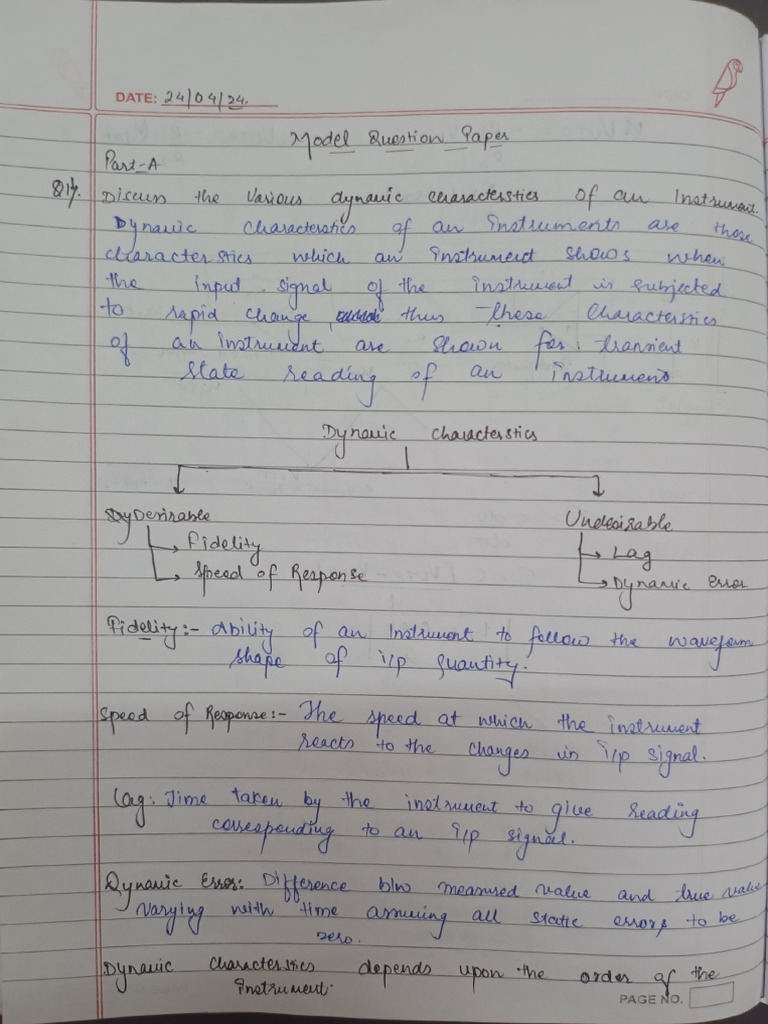 DATE: 24/04/24.
Model Question Paper
Part-A
Q1). Discuss the various dynamic characterstics of an Instrument.
Dynamic characterstics of an instruments are those
characterstics which an instrument shows when
the input signal of the instrument is subjected
to rapid change, thus these characterstics
of an instrument are shown for transient
state reading of an instrument
Dynamic characterstics
Desirable Undesirable
Fidelity Lag
Speed of Response Dynamic error
Fidelity:- Ability of an instrument to follow the waveform
shape of i/p quantity.
Speed of Response:- The speed at which the instrument
reacts to the changes in i/p signal.
Lag: Time taken by the instrument to give reading
corresponding to an i/p signal.
Dynamic Error: Difference b/w measured value and true value
varying with time assuming all static errors to be
zero.
Dynamic characterstics depends upon the order of the
instrument.
PAGE NO.